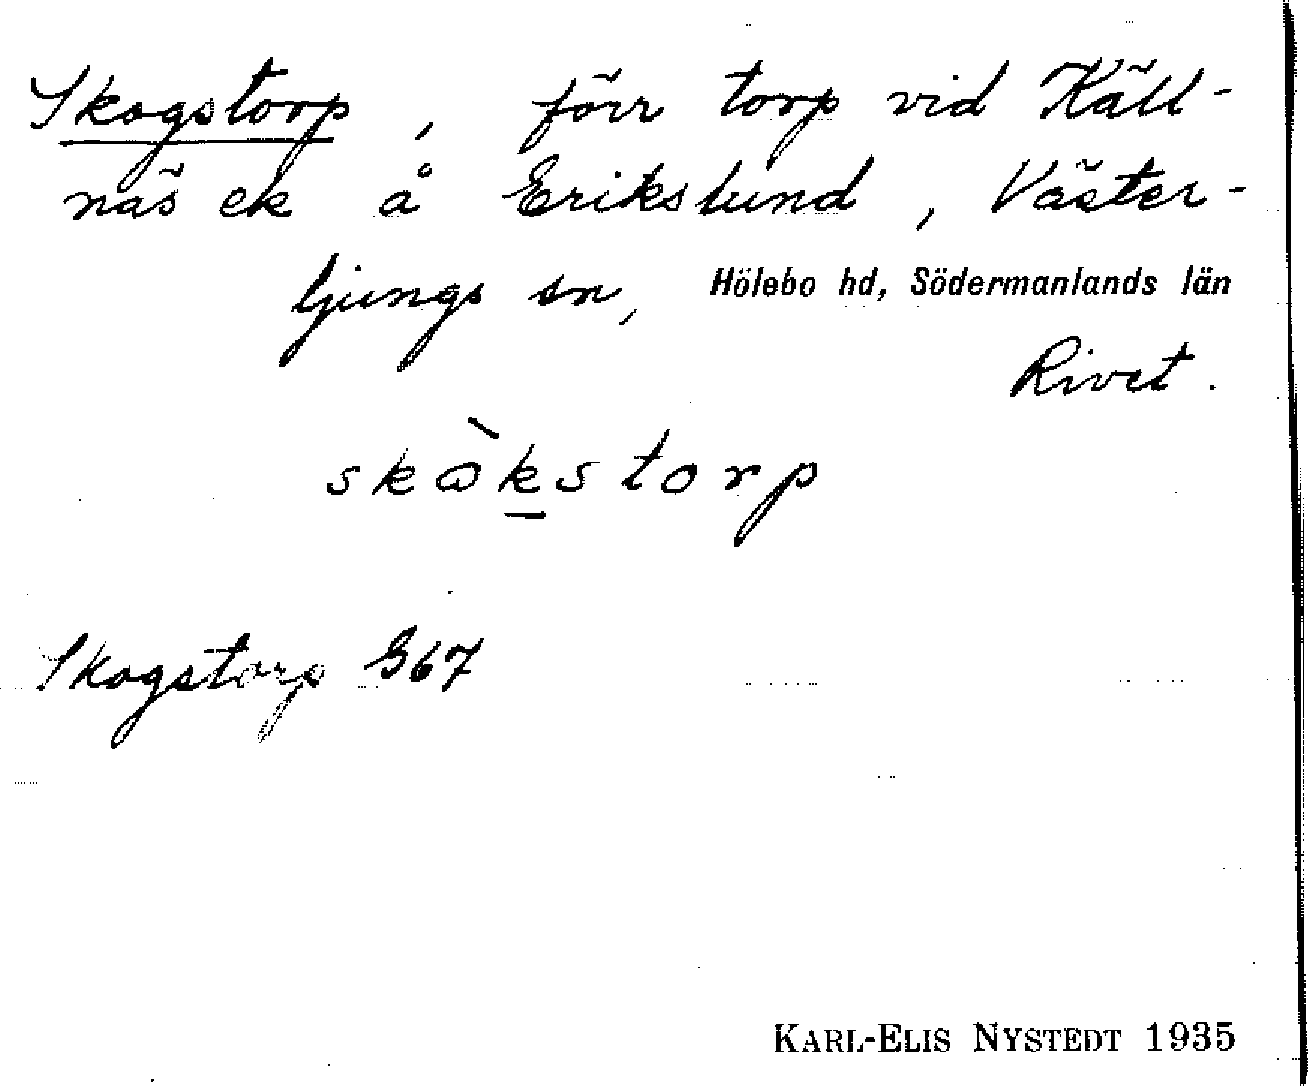 Skogstorp, förr torp vid Käll-
näs ek å Erikslund, Väster-
ljungs sn, Hölebo hd, Södermanlands län
Rivet.
skò̀kstorp
Skogstorp G67
KARL-ELIS NYSTEDT 1935